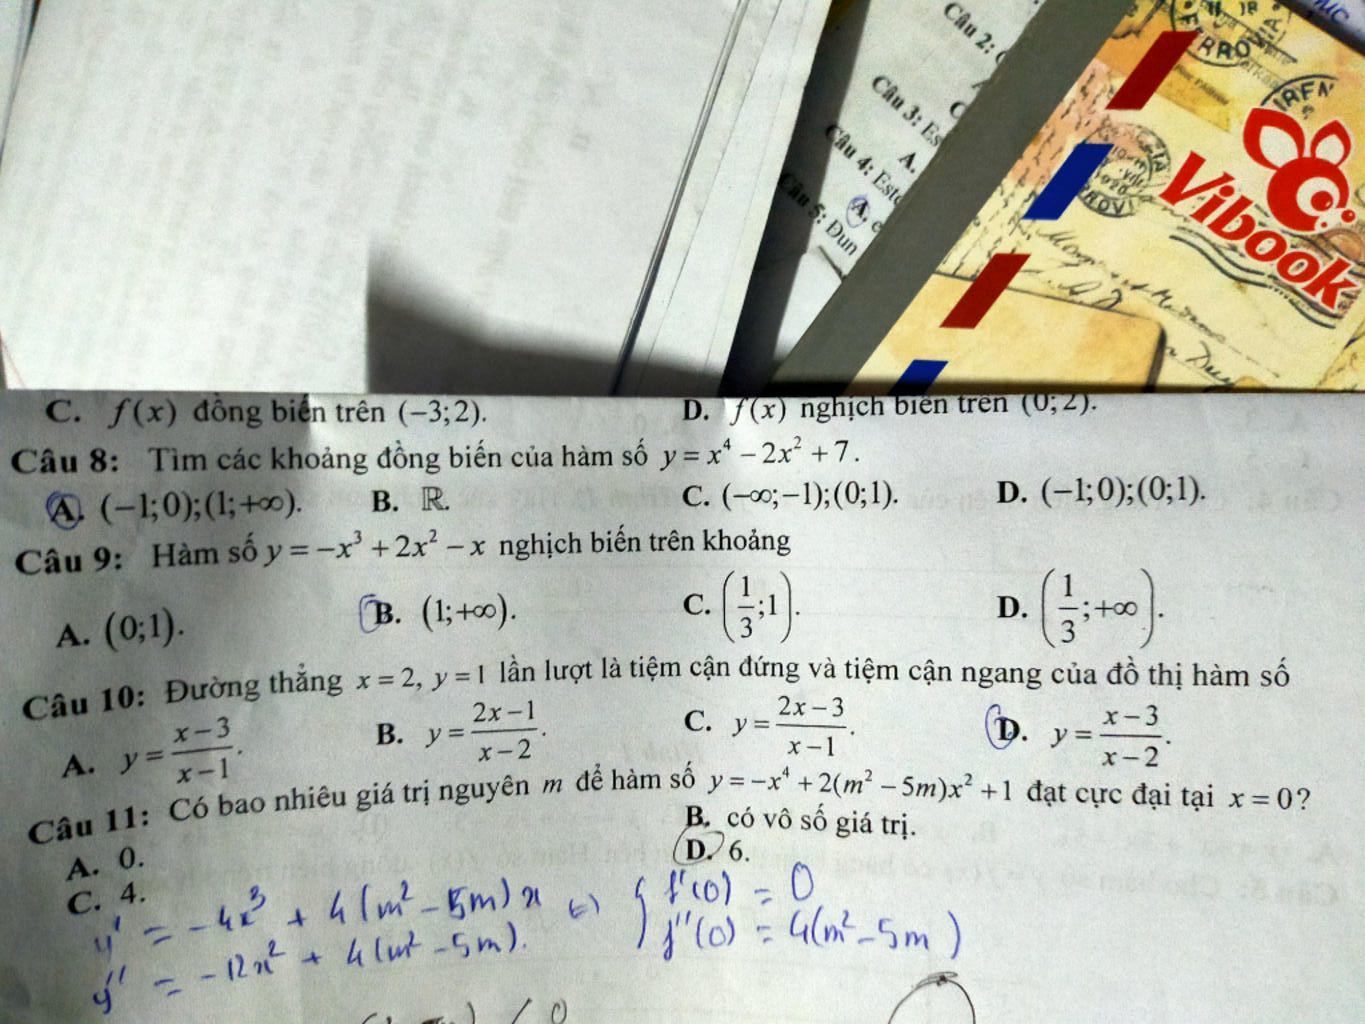 Câu 2:
Câu 3: Es
A.
Câu 4: Este
A.
Câu 5: Đun
Vibook
C. f(x) đồng biến trên (−3;2).
D. f(x) nghịch biến trên (0;2).
Câu 8: Tìm các khoảng đồng biến của hàm số y = x⁴ − 2x² + 7.
A. (−1;0);(1;+∞). B. ℝ. C. (−∞;−1);(0;1). D. (−1;0);(0;1).
Câu 9: Hàm số y = −x³ + 2x² − x nghịch biến trên khoảng
A. (0;1). B. (1;+∞). C. (1/3;1). D. (1/3;+∞).
Câu 10: Đường thẳng x = 2, y = 1 lần lượt là tiệm cận đứng và tiệm cận ngang của đồ thị hàm số
A. y = (x−3)/(x−1). B. y = (2x−1)/(x−2). C. y = (2x−3)/(x−1). D. y = (x−3)/(x−2).
Câu 11: Có bao nhiêu giá trị nguyên m để hàm số y = −x⁴ + 2(m² − 5m)x² + 1 đạt cực đại tại x = 0?
A. 0. B. có vô số giá trị.
C. 4. D. 6.
y' = −4x³ + 4(m² − 5m)x ⇔ { f'(0) = 0
y'' = −12x² + 4(m² − 5m). f''(0) = 4(m² − 5m)